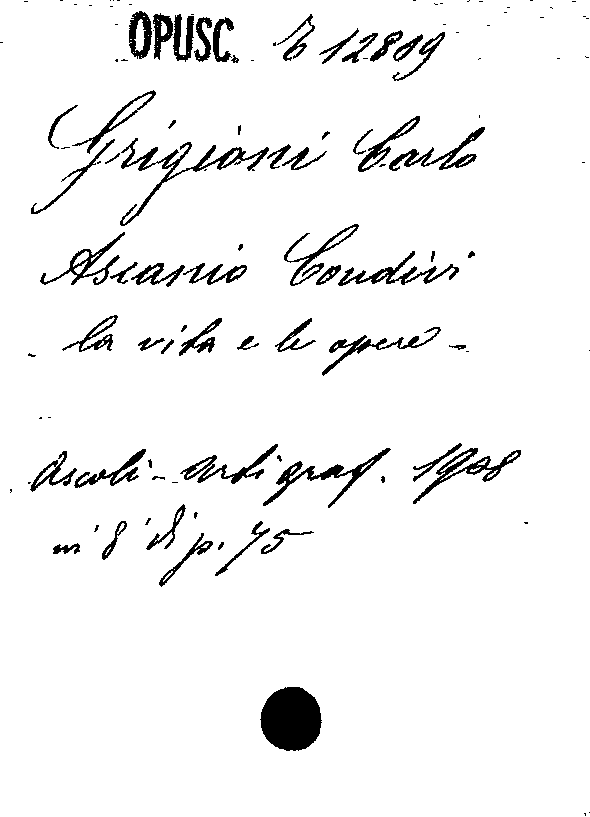 OPUSC. E 12809
Grigioni Carlo
Ascanio Condivi
- la vita e le opere -
Ascoli - Arti graf. 1908
in 8° di p. 75